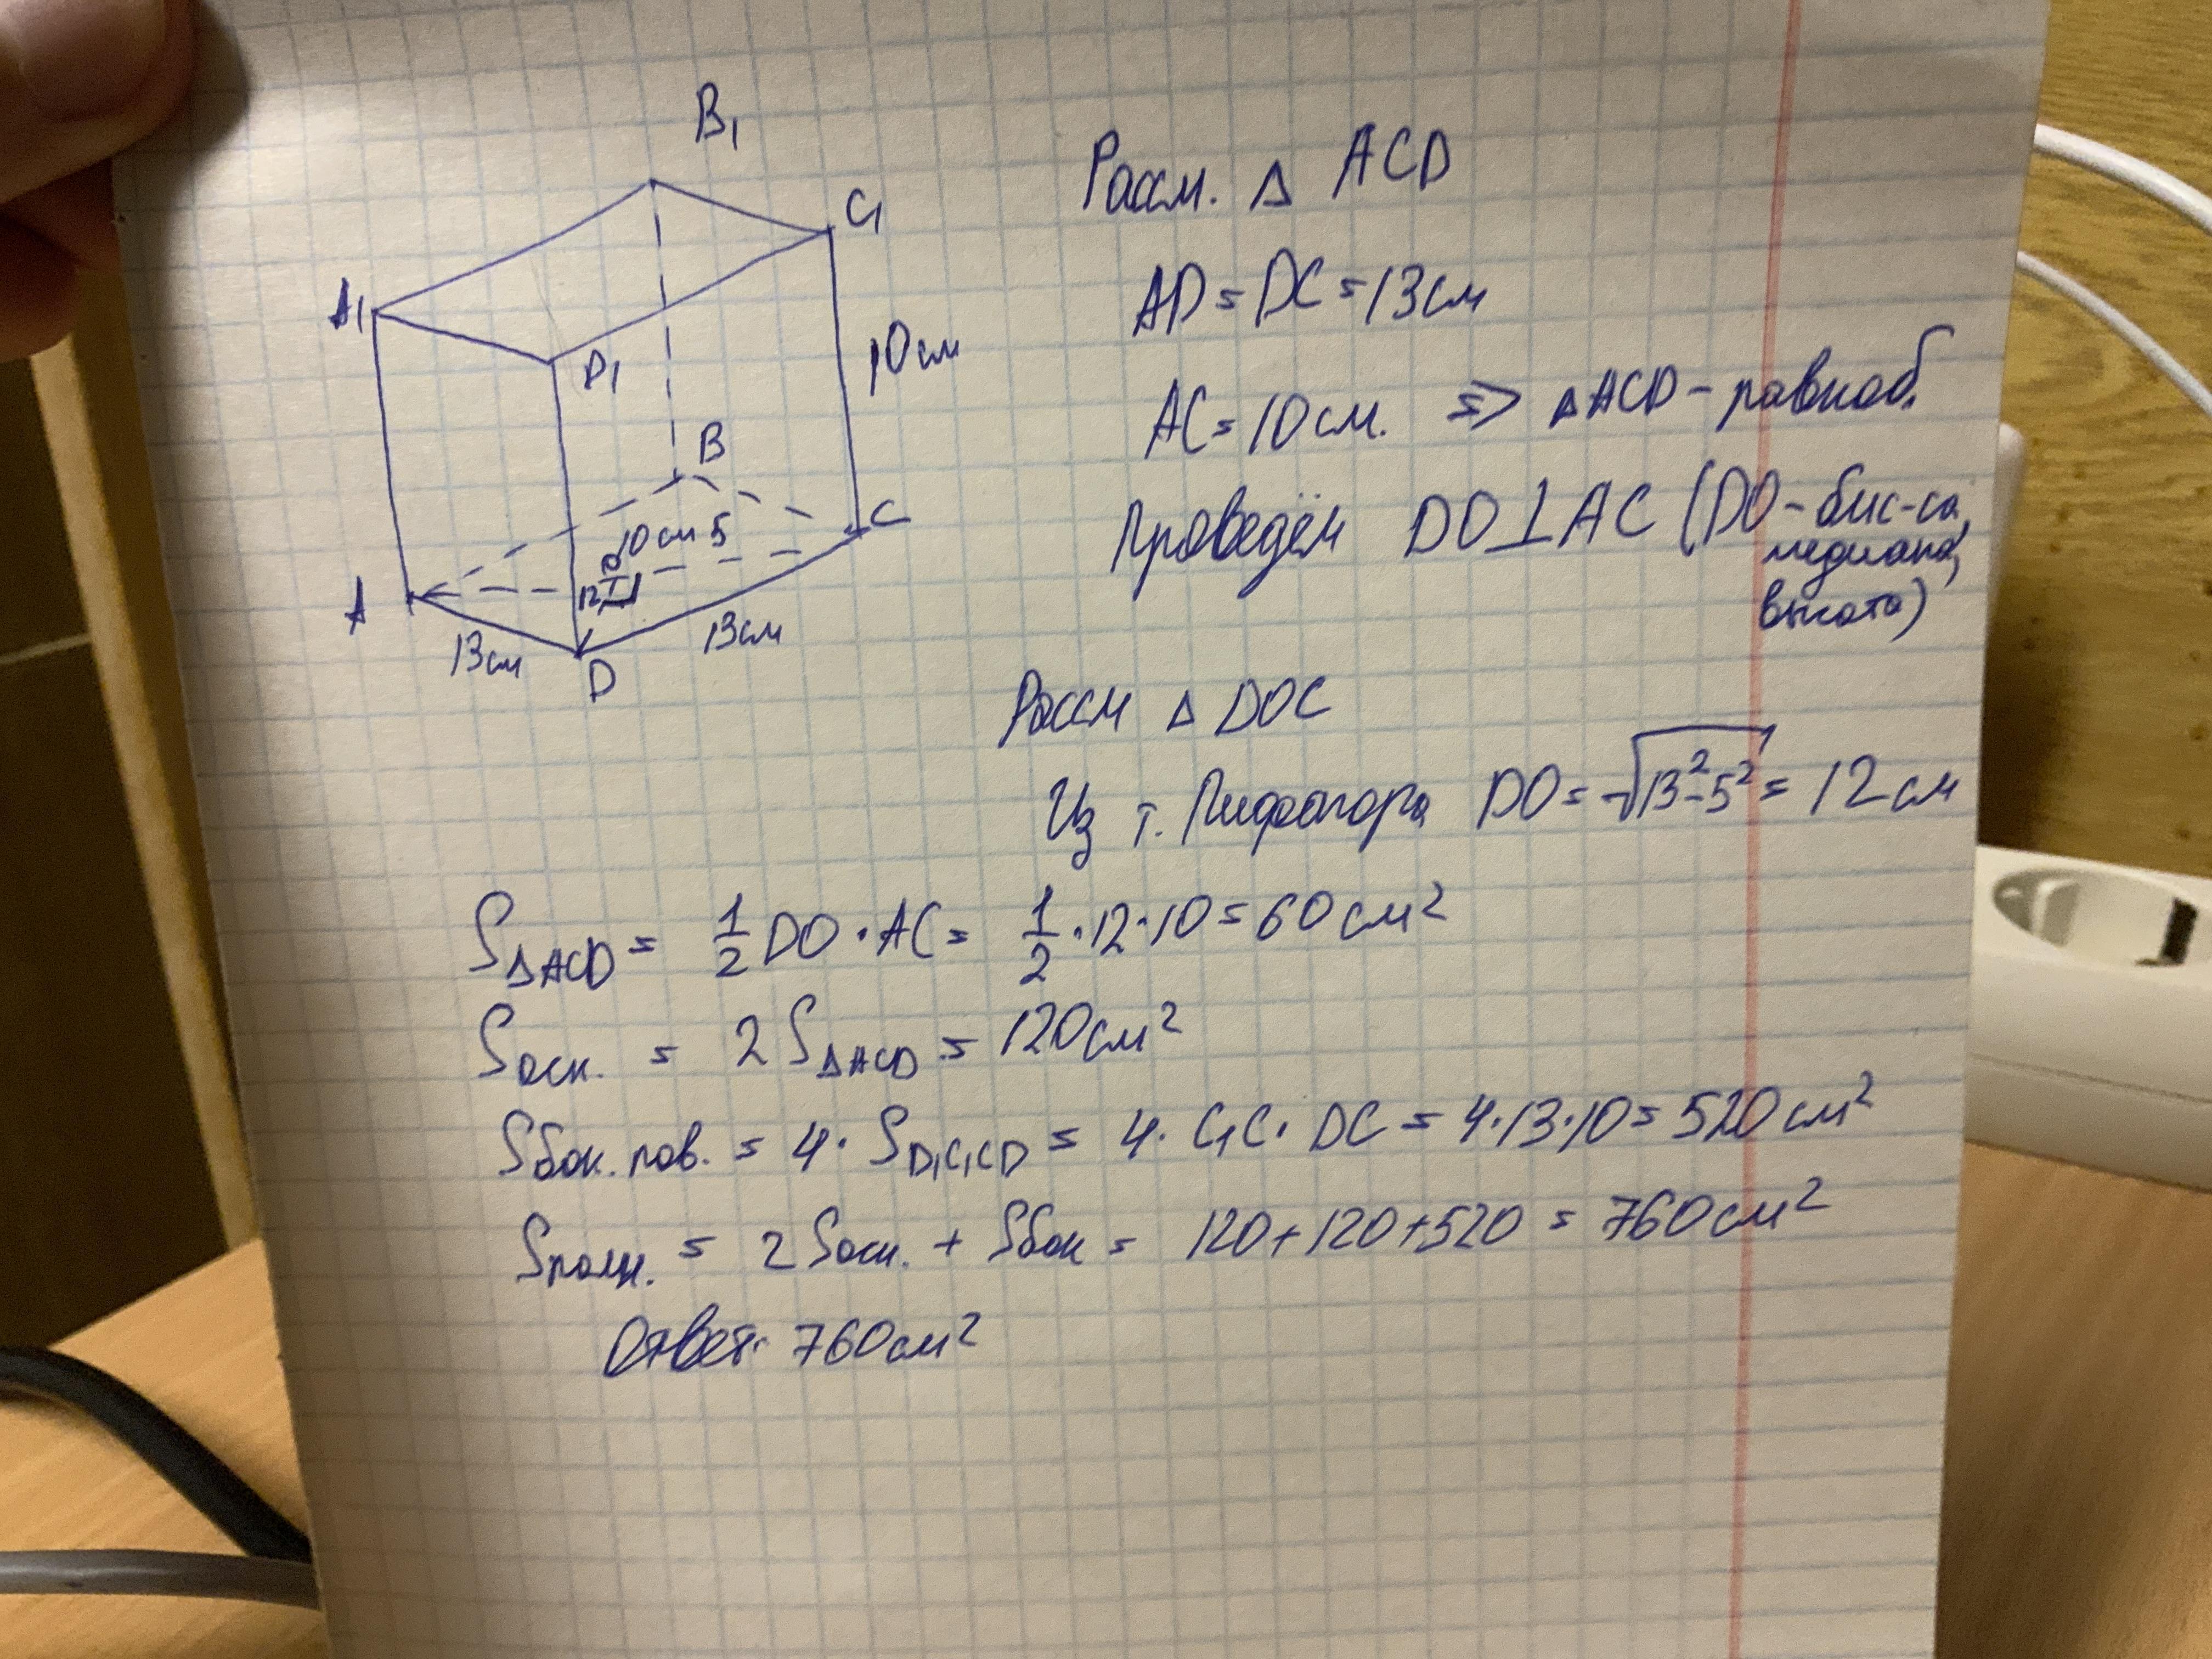 B₁
C₁
A₁
D₁
10 см
B
10 см 5
O
C
12
A
13 см
13 см
D
Рассм. Δ ACD
AD = DC = 13 см
AC = 10 см. => Δ ACD - равноб.
Проведём DO⊥AC (DO - бис-са,
медиана,
высота)
Рассм Δ DOC
Из т. Пифагора DO = √13² - 5² = 12 см
S ΔACD = 1/2 DO · AC = 1/2 · 12 · 10 = 60 см²
S осн. = 2 S ΔACD = 120 см²
S бок. пов. = 4 · S D₁C₁CD = 4 · C₁C · DC = 4 · 13 · 10 = 520 см²
S полн. = 2 S осн. + S бок = 120 + 120 + 520 = 760 см²
Ответ: 760 см²